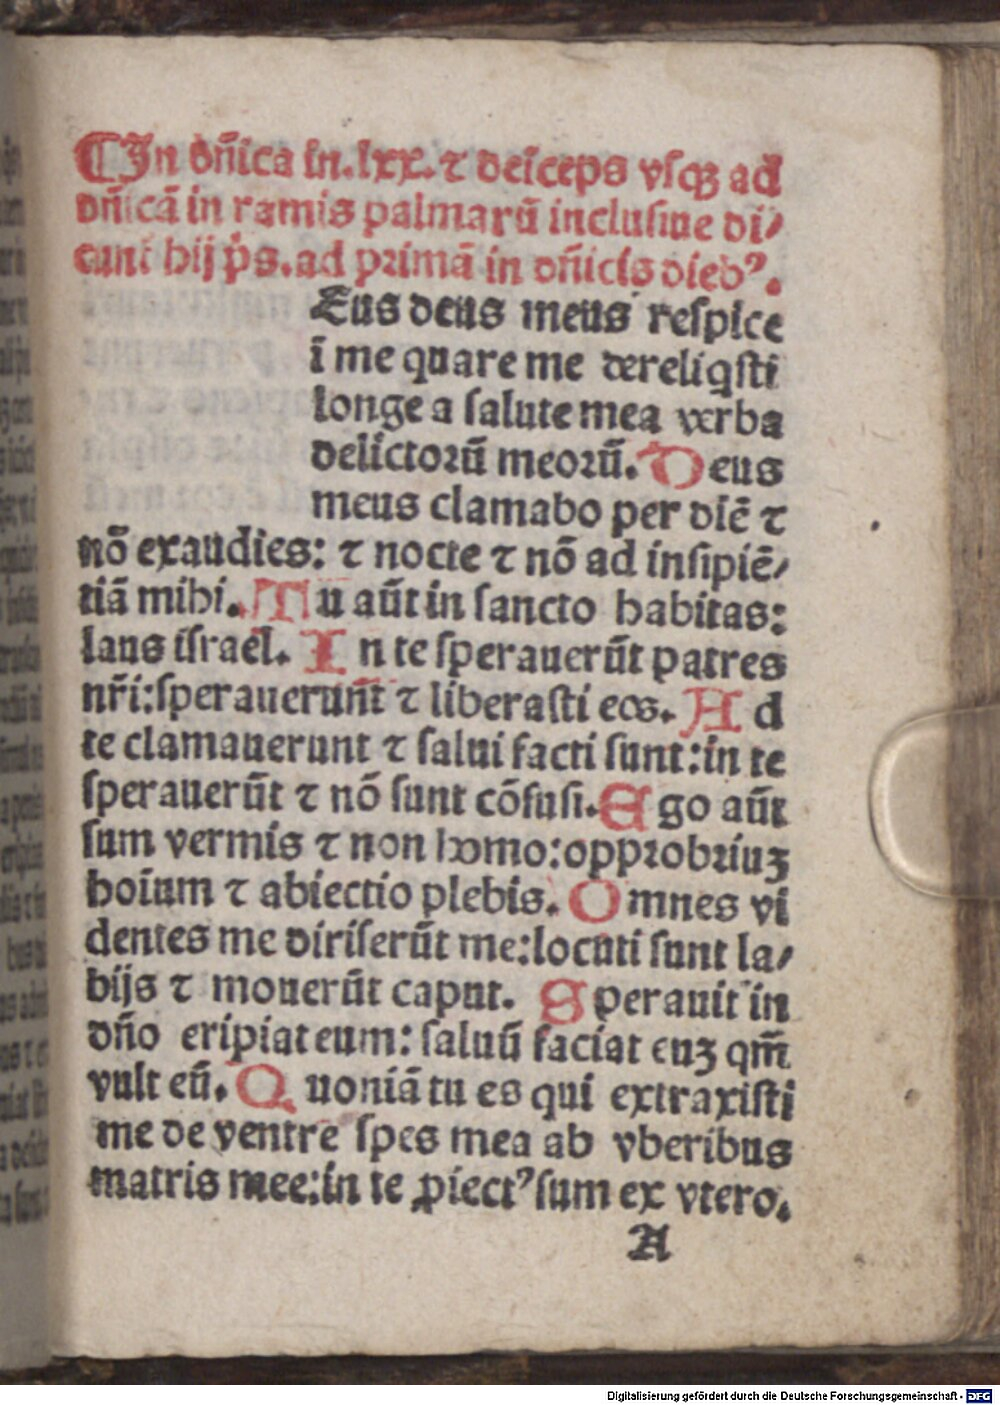 ¶In dn̄ica in. lxx. ⁊ deīceps vsqꝫ ad
dn̄icā in ramis palmarū inclusiue di⸗
cunt hij ṗs. ad primā in dn̄icis diebꝰ.
Eus deus meus respice
ī me quare me dereliqsti
longe a salute mea verba
delictorū meorū. Deus
meus clamabo per diē ⁊
nō exaudies: ⁊ nocte ⁊ nō ad insipiē⸗
tiā mihi. Tu aūt in sancto habitas:
laus israel. In te sperauerūt patres
nr̄i: sperauerunt ⁊ liberasti eos. Ad
te clamauerunt ⁊ salui facti sunt: in te
sperauerūt ⁊ nō sunt cōfusi. Ego aūt
sum vermis ⁊ non homo: opprobriuꝫ
hoīum ⁊ abiectio plebis. Omnes vi
dentes me diriserūt me: locuti sunt la⸗
bijs ⁊ mouerūt caput. Sperauit in
dn̄o eripiat eum: saluū faciat euꝫ qm̄
vult eū. Quoniā tu es qui extraxisti
me de ventre spes mea ab vberibus
matris mee: in te ꝓiectꝰ sum ex vtero.
A
Digitalisierung gefördert durch die Deutsche Forschungsgemeinschaft - DFG